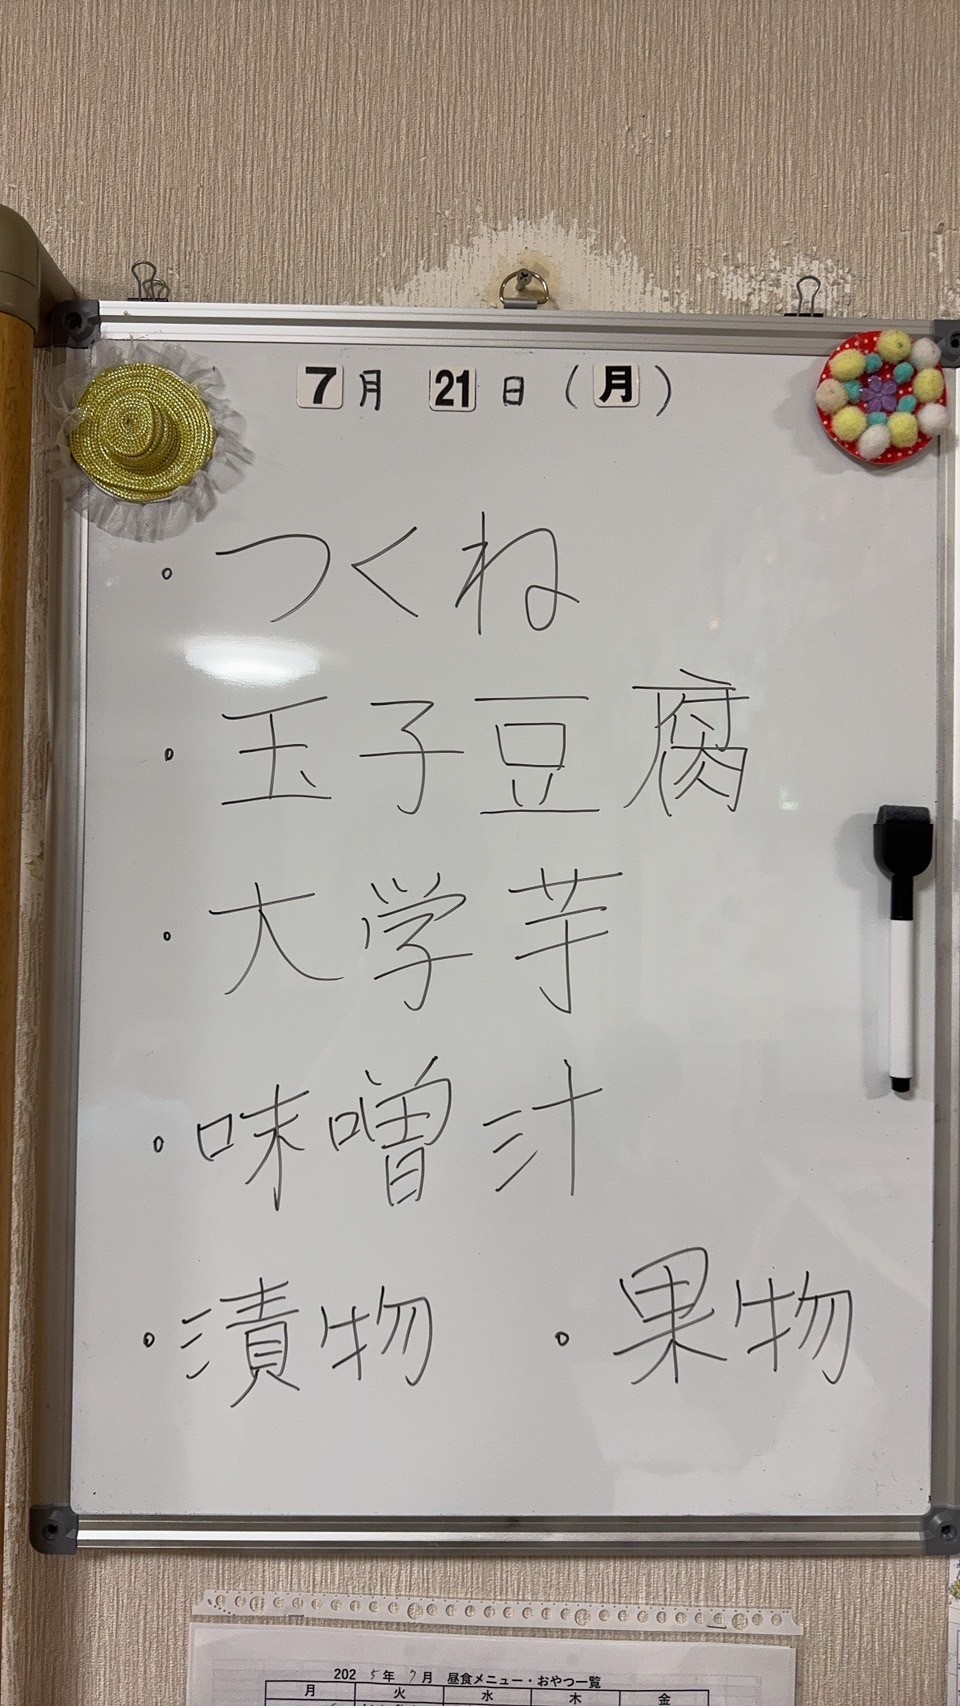 7月 21日(月)
・つくね
・玉子豆腐
・大学芋
・味噌汁
・漬物 ・果物
2025年 7月 昼食メニュー・おやつ一覧
月 火 水 木 金